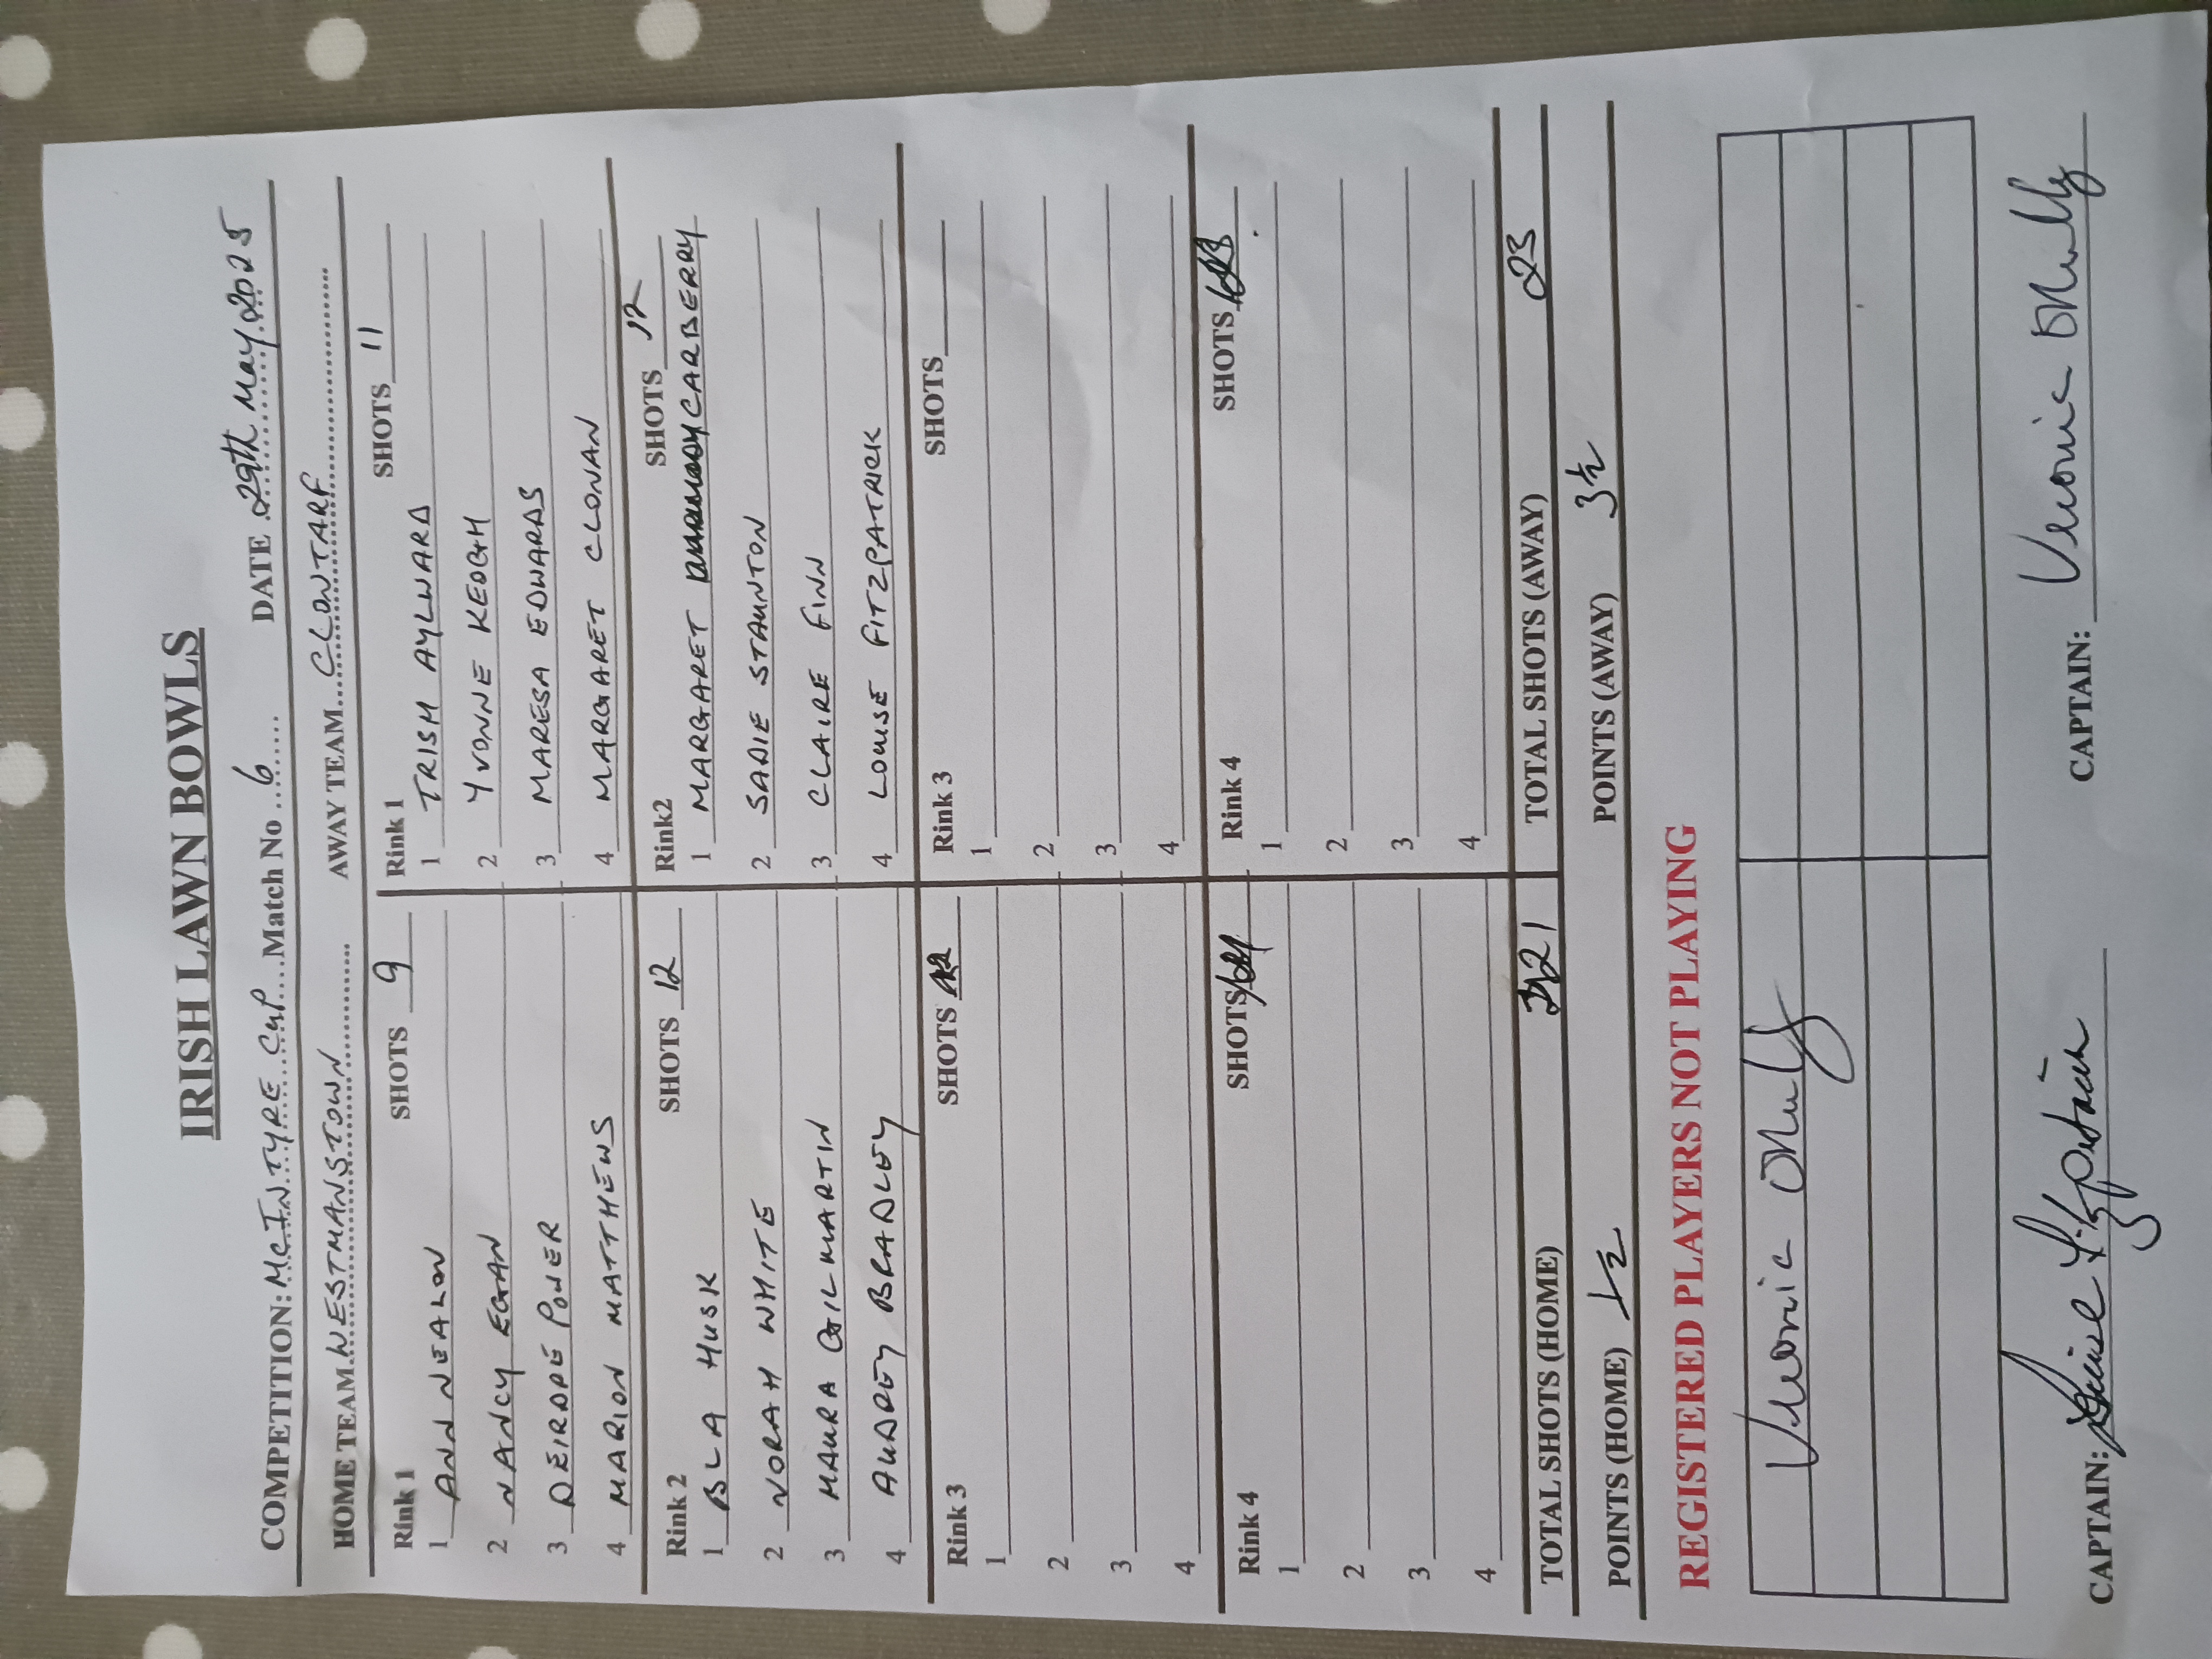 IRISH LAWN BOWLS
COMPETITION: McINTYRE CUP Match No 6 DATE 29th May 2025
HOME TEAM WESTMANSTOWN AWAY TEAM CLONTARF
Rink 1 SHOTS 9 Rink 1 SHOTS 11
1 ANN NEALON 1 TRISH AYLWARD
2 NANCY EGAN 2 YVONNE KEOGH
3 DEIRDRE POWER 3 MARESA EDWARDS
4 MARION MATTHEWS 4 MARGARET CLONAN
Rink 2 SHOTS 12 Rink2 SHOTS 12
1 BLA HUSK 1 MARGARET CARBERRY
2 NORAH WHITE 2 SADIE STAUNTON
3 MAURA GILMARTIN 3 CLAIRE FINN
4 AUDREY BRADLEY 4 LOUISE FITZPATRICK
Rink 3 SHOTS Rink 3 SHOTS
1 1
2 2
3 3
4 4
Rink 4 SHOTS Rink 4 SHOTS
1 1
2 2
3 3
4 4
TOTAL SHOTS (HOME) 21 TOTAL SHOTS (AWAY) 23
POINTS (HOME) ½ POINTS (AWAY) 3½
REGISTERED PLAYERS NOT PLAYING
CAPTAIN: CAPTAIN: Veronica